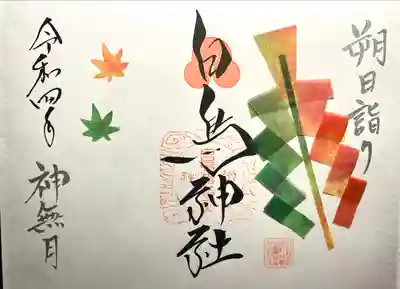 朔日詣り
白鳥神社
令和四年
神無月